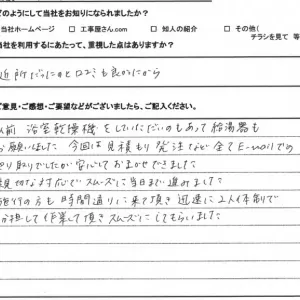 どのようにして当社をお知りになられましたか?
当社ホームページ □ 工事屋さん.com □ 知人の紹介 □ その他(
チラシを見て 等
当社を利用するにあたって、重視した点はありますか?
近所だったのと口コミも良かったから
ご意見・ご感想・ご要望などがございましたら、ご記入ください。
以前 浴室乾燥機をしていただいたのもあって給湯器も
お願いしました 今回は見積もり発注など全てE-mailでの
やり取りでしたが安心しておまかせできました
親切な対応でスムーズに当日まで進みました
施行の方も時間通りに来て頂き迅速に2人体制で
分担して作業して頂きスムーズにしてもらいました